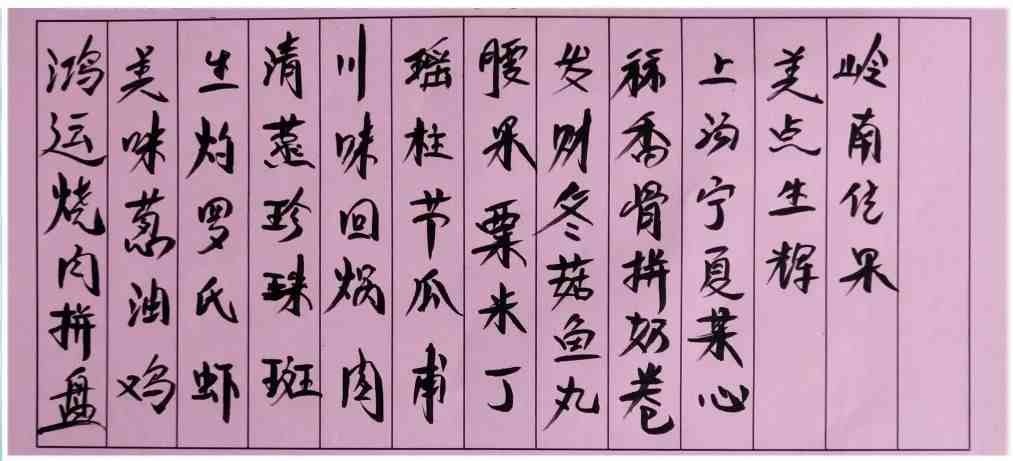 鸿运烧肉拼盘
美味葱油鸡
生灼罗氏虾
清蒸珍珠斑
川味回锅肉
瑶柱节瓜甫
腰果粟米丁
发财冬菇鱼丸
祘香骨拼奶卷
上汤宁夏菜心
美点生辉
岭南佳果